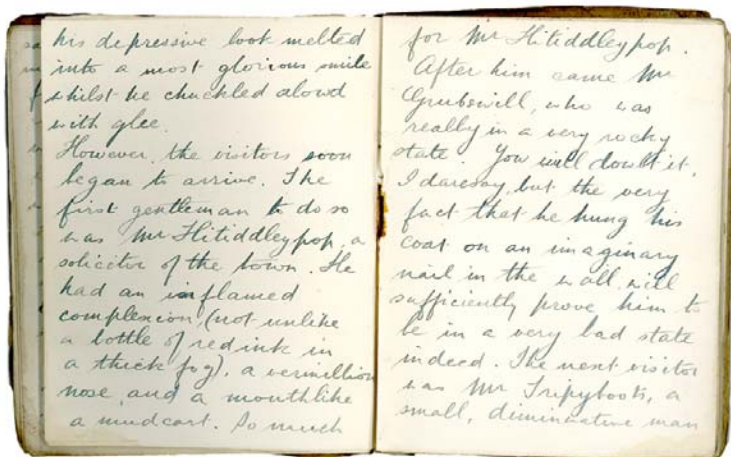 his depressive look melted
into a most glorious smile
whilst he chuckled alowd
with glee.
However, the visitors soon
began to arrive. The
first gentleman to do so
was Mr Hitiddleypop, a
soliciter of the town. He
had an inflamed
complexion, (not unlike
a bottle of red ink in
a thick fog), a vermillion
nose, and a mouthlike
a mudcart. So much
for Mr Hitiddleypop.
After him came Mr
Grubswill, who was
really in a very rocky
state. You will dowlt it,
I daresay, but the very
fact that he hung his
coat on an imaginary
nail in the wall, will
sufficiently prove him to
be in a very bad state
indeed. The next visitor
was Mr Tripyboots, a
small, diminative man